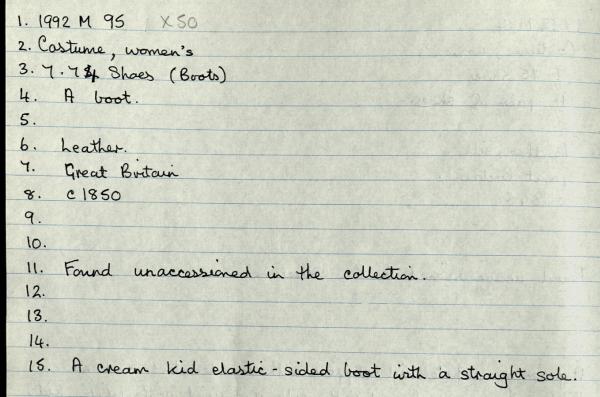 1. 1992 M 95 X 50
2. Costume, women's
3. 7.74 Shoes (Boots)
4. A boot.
5.
6. Leather.
7. Great Britain
8. c 1850
9.
10.
11. Found unaccessioned in the collection.
12.
13.
14.
15. A cream kid elastic-sided boot with a straight sole.